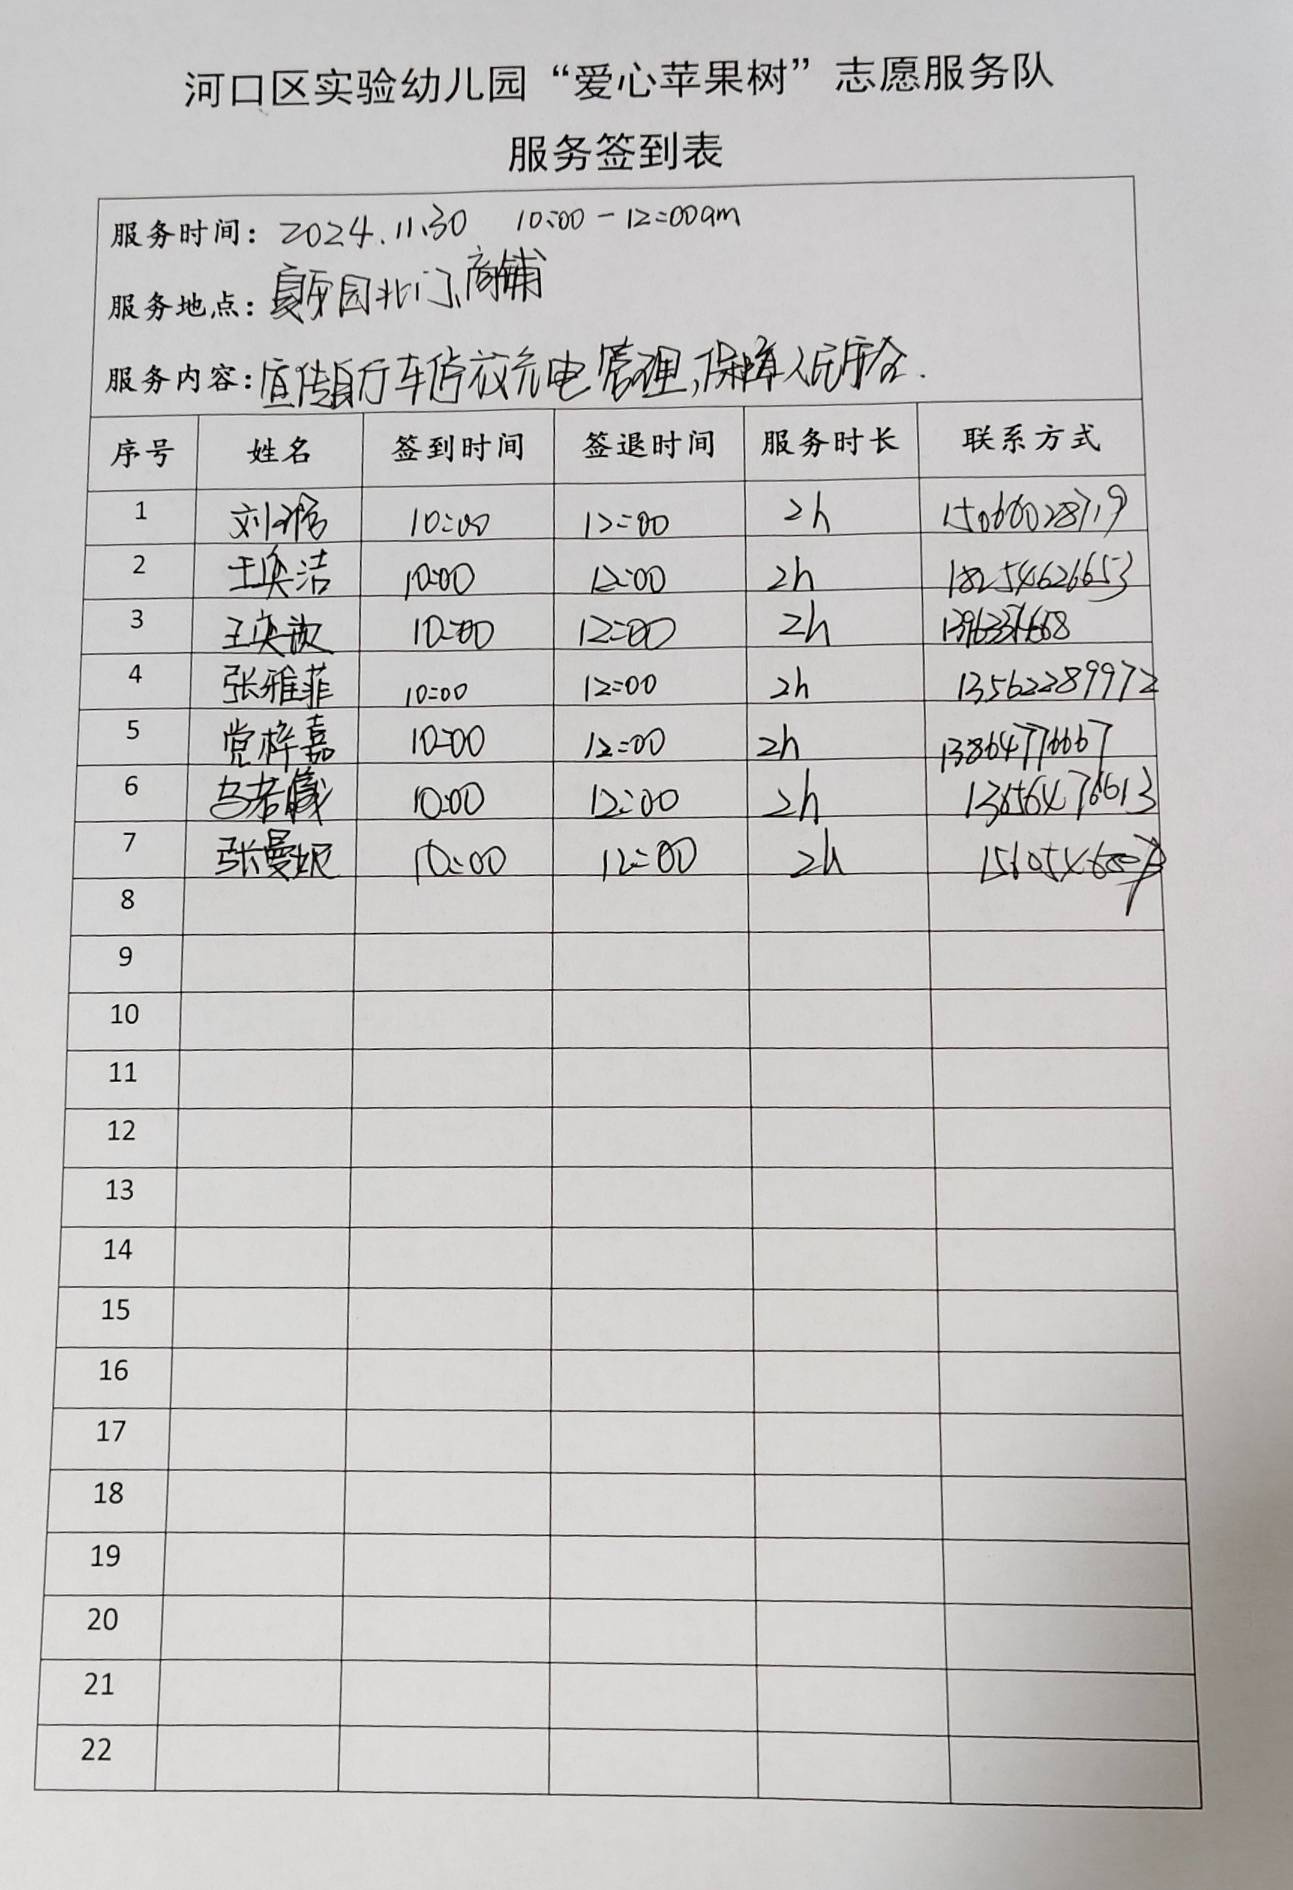 河口区实验幼儿园“爱心苹果树”志愿服务队
服务签到表
服务时间：2024.11.30 10:00-12:00am
服务地点：园北门、商铺
服务内容：宣传自行车停放充电管理,保障人民安全.
序号 姓名 签到时间 签退时间 服务时长 联系方式
1 刘 10:00 12:00 2h
2 王奂洁 10:00 12:00 2h 18254626653
3 王奂 10:00 12:00 2h
4 张雅菲 10:00 12:00 2h 13562289972
5 党梓嘉 10:00 12:00 2h 13864776667
6 若曦 10:00 12:00 2h
7 张曼妮 10:00 12:00 2h
8
9
10
11
12
13
14
15
16
17
18
19
20
21
22